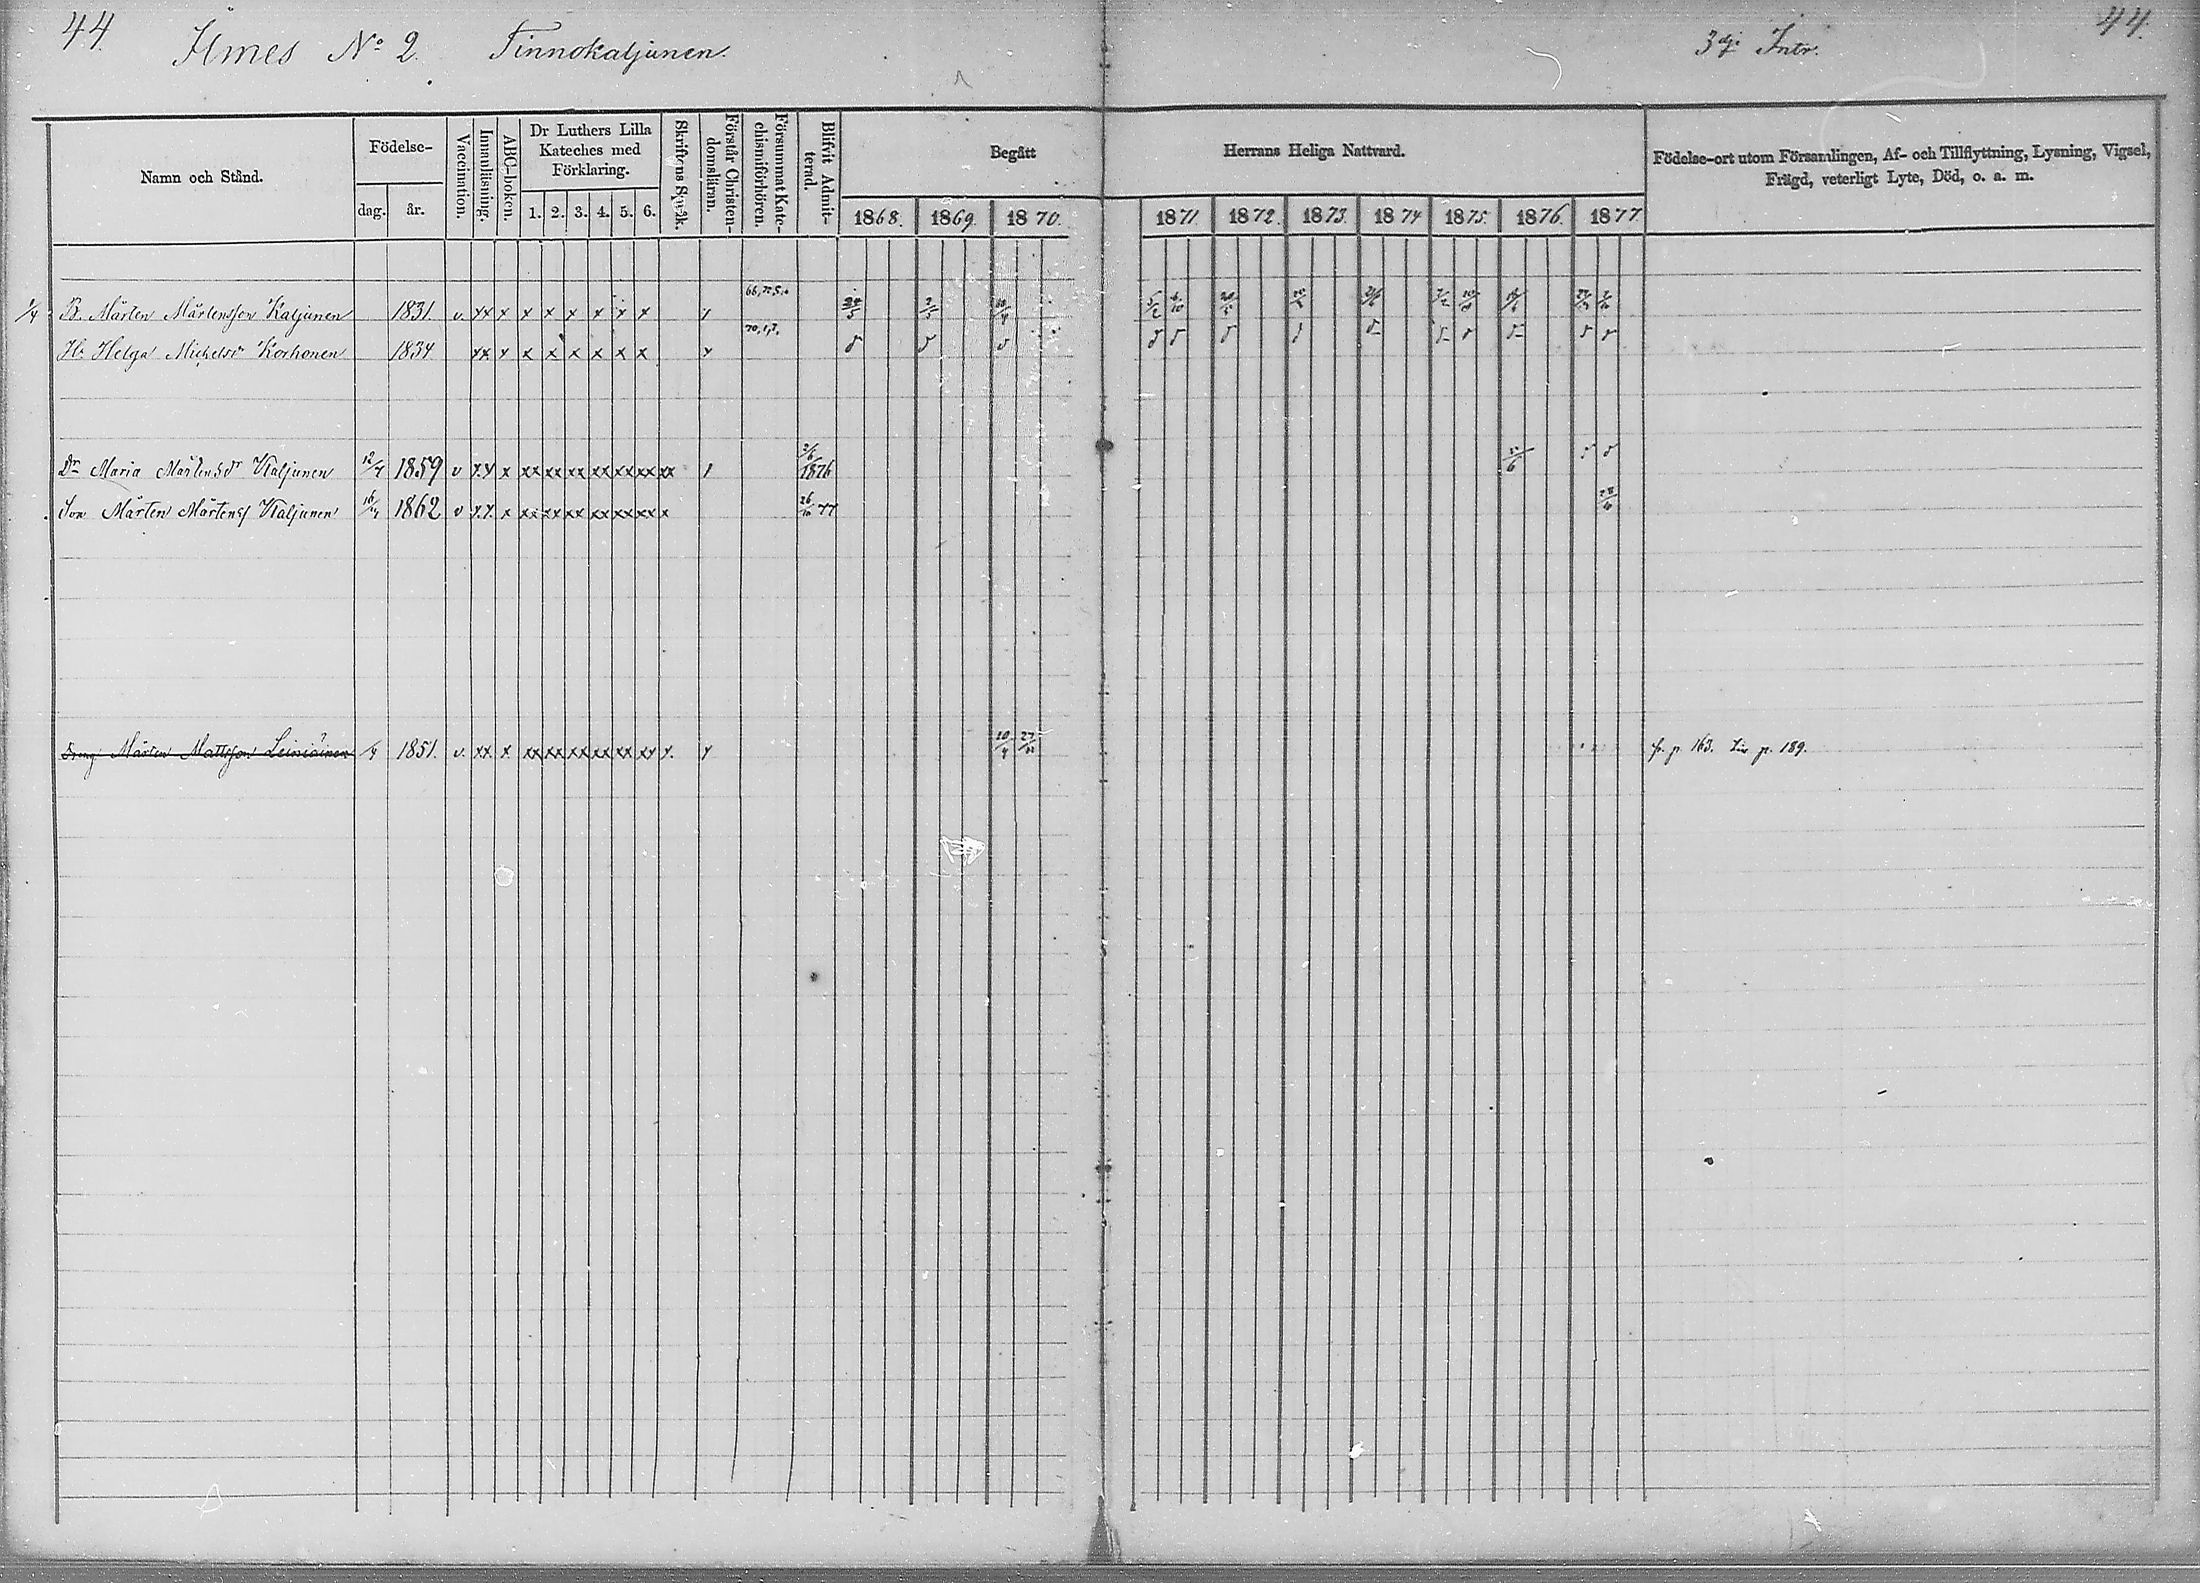 44
Ilmes No 2. Tinnokaljunen.
3dje Intr.
44.
Namn och Stånd.
Födelse-
dag.
år.
Vaccination.
Innanläsning.
ABC-boken.
Dr Luthers Lilla
Kateches med
Förklaring.
1. 2. 3. 4. 5. 6.
Skriftens Språk.
Förstår Christen-
domsläran.
Försummat Kate-
chismiförhören.
Blifvit Admit-
terad.
Begått
Herrans Heliga Nattvard.
1868. 1869. 1870. 1871. 1872. 1873. 1874 1875. 1876. 1877.
Födelse-ort utom Församlingen, Af- och Tillflyttning, Lysning, Vigsel,
Frägd, veterligt Lyte, Död, o. a. m.
1/4 B. Mårten Mårtensson Kaljunen 1831. v. xx x x x x x x x
H. Helga Michelsdr Korhonen 1834 xx x x x x x x x
Dr Maria Mårtensdr Kaljunen 12/4 1859 v x.x x xx xx xx xx xx xx xx 1876
Son Mårten Mårtens Kaljunen 1862 v x.x. x xx xx xx xx xx xx x 26/10 77
Dreng Mårten Mattsson Leiniäinen 1851. v. xx x xx xx xx xx xx xx x. 10/4 fr. p. 163. p. 189.